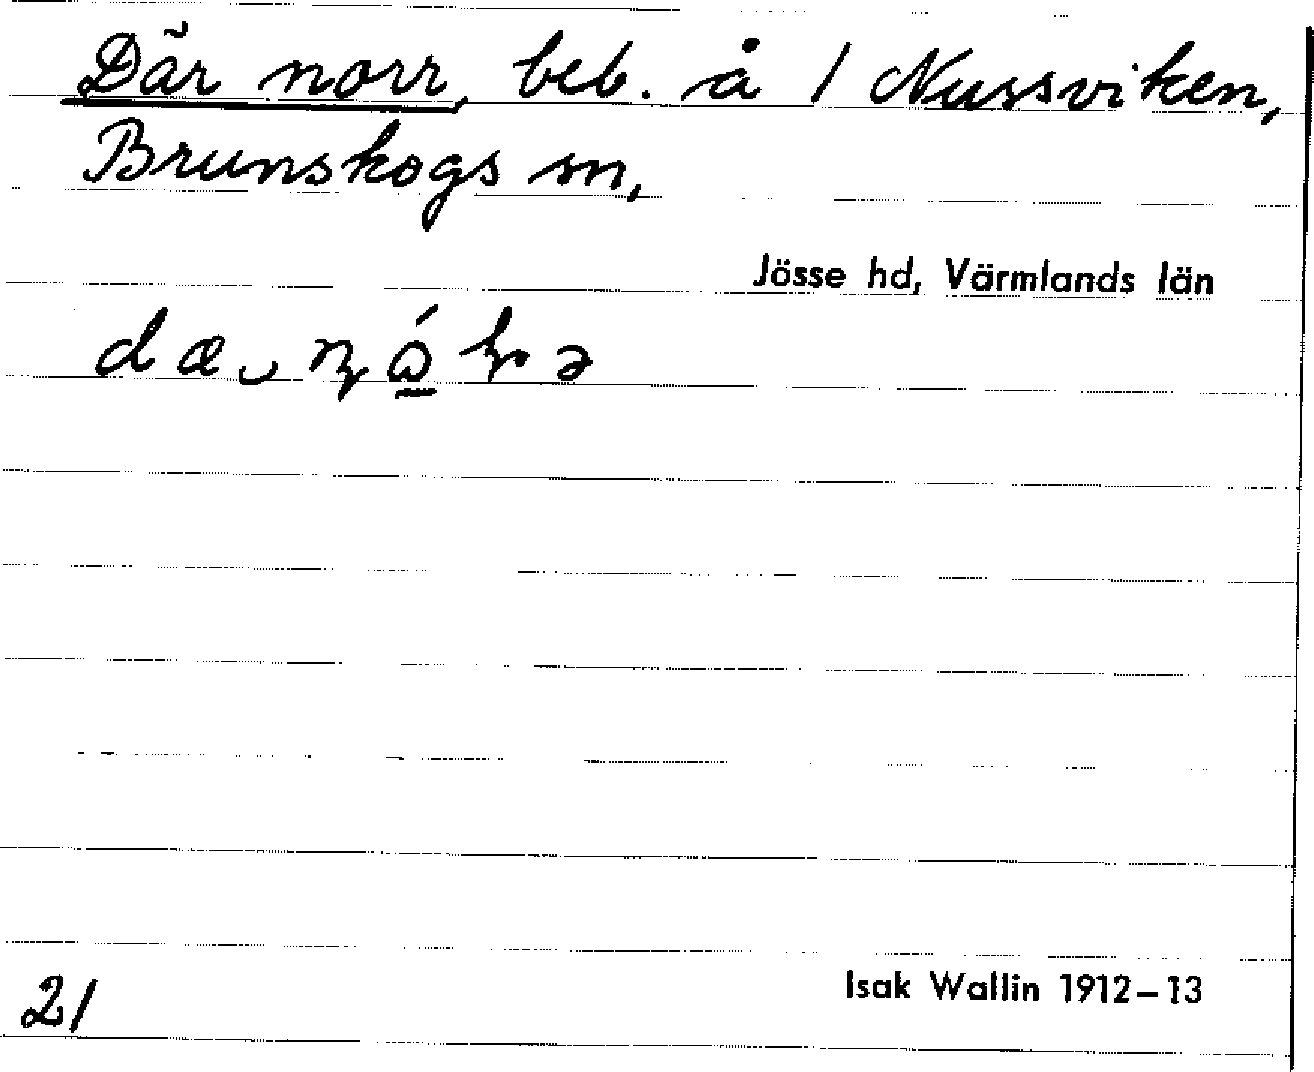 Där norr, beb. å 1 Nussviken,
Brunskogs sn,
Jösse hd, Värmlands län
21
Isak Wallin 1912–13